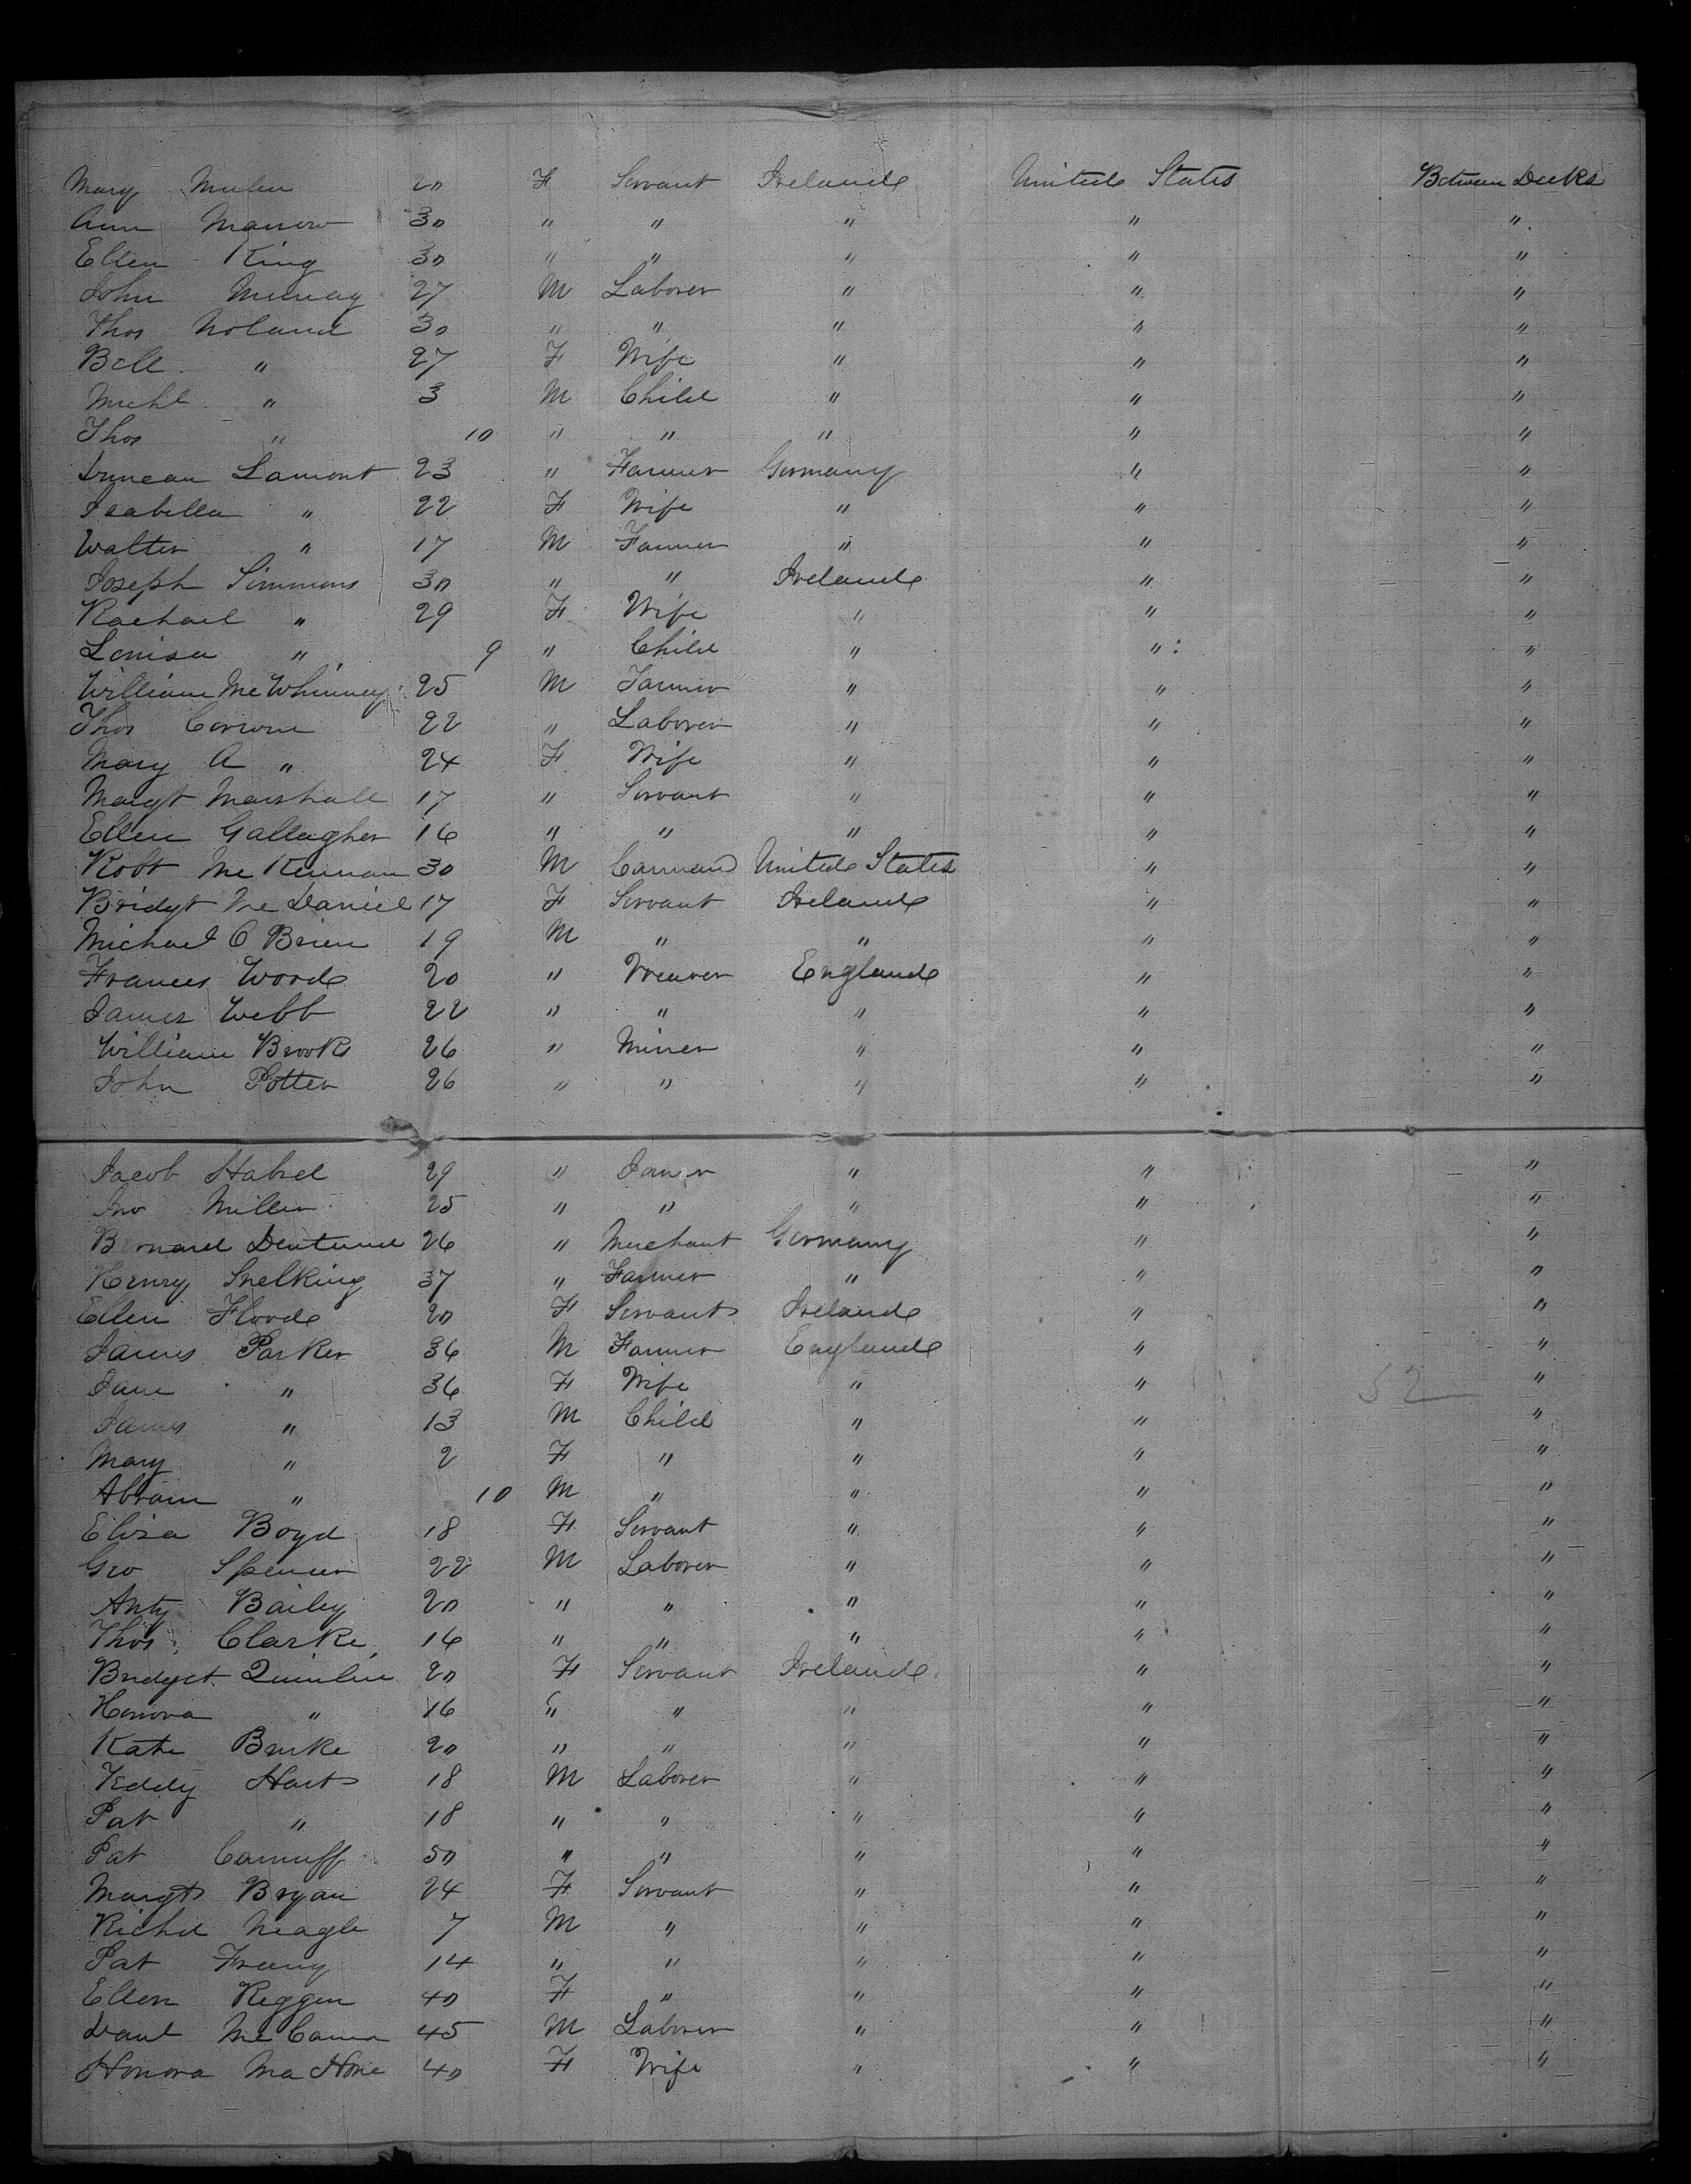 Mary Mulen 20 F Servant Ireland United States Between Decks
Ann Marrow 30 " " " " "
Ellen King 30 " " " " "
John Murray 27 M Laborer " " "
Thos Noland 30 " " " " "
Bell " 27 F Wife " " "
Michl " 3 M Child " " "
Thos " 10 " " " " "
Duncan Lamont 23 " Farmer Germany " "
Isabella " 22 F Wife " " "
Walter " 17 M Farmer " " "
Joseph Simmons 30 " " Ireland " "
Rachael " 29 F Wife " " "
Louisa " 9 " Child " " "
William McWhinney 25 M Farmer " " "
Thos 22 " Laborer " " "
Mary A " 24 F Wife " " "
Margt Marshall 17 " Servant " " "
Ellen Gallagher 16 " " " " "
Robt McKinnan 30 M United States " "
Bridgt McDaniel 17 F Servant Ireland " "
Michael O Brien 19 M " " " "
Frances Wood 20 " Weaver England " "
James Webb 22 " " " " "
William Brooks 26 " Miner " " "
John Potter 26 " " " " "
Jacob 29 " Farmer " " "
Jno Miller 25 " " " " "
Bernard 26 " Merchant Germany " "
Henry Snelking 37 " Farmer " " "
Ellen Flood 20 F Servant Ireland " "
James Parker 36 M Farmer England " "
Jane " 36 F Wife " " "
52
James " 13 M Child " " "
Mary " 2 F " " " "
Abram " 10 M " " " "
Eliza Boyd 18 F Servant " " "
Geo Spencer 22 M Laborer " " "
Anty Bailey 20 " " " " "
Thos Clarke 16 " " " " "
Bridget Quinlin 20 F Servant Ireland " "
Honora " 16 " " " " "
Kate Burke 20 " " " " "
Teddy Hart 18 M Laborer " " "
Pat " 18 " " " " "
Pat 50 " " " " "
Margt Bryan 24 F Servant " " "
Richd Neagle 7 M " " " "
Pat 14 " " " " "
Ellen Reggen 40 F " " " "
Danl 45 M Laborer " " "
Honora Ma Hone 40 F Wife " " "